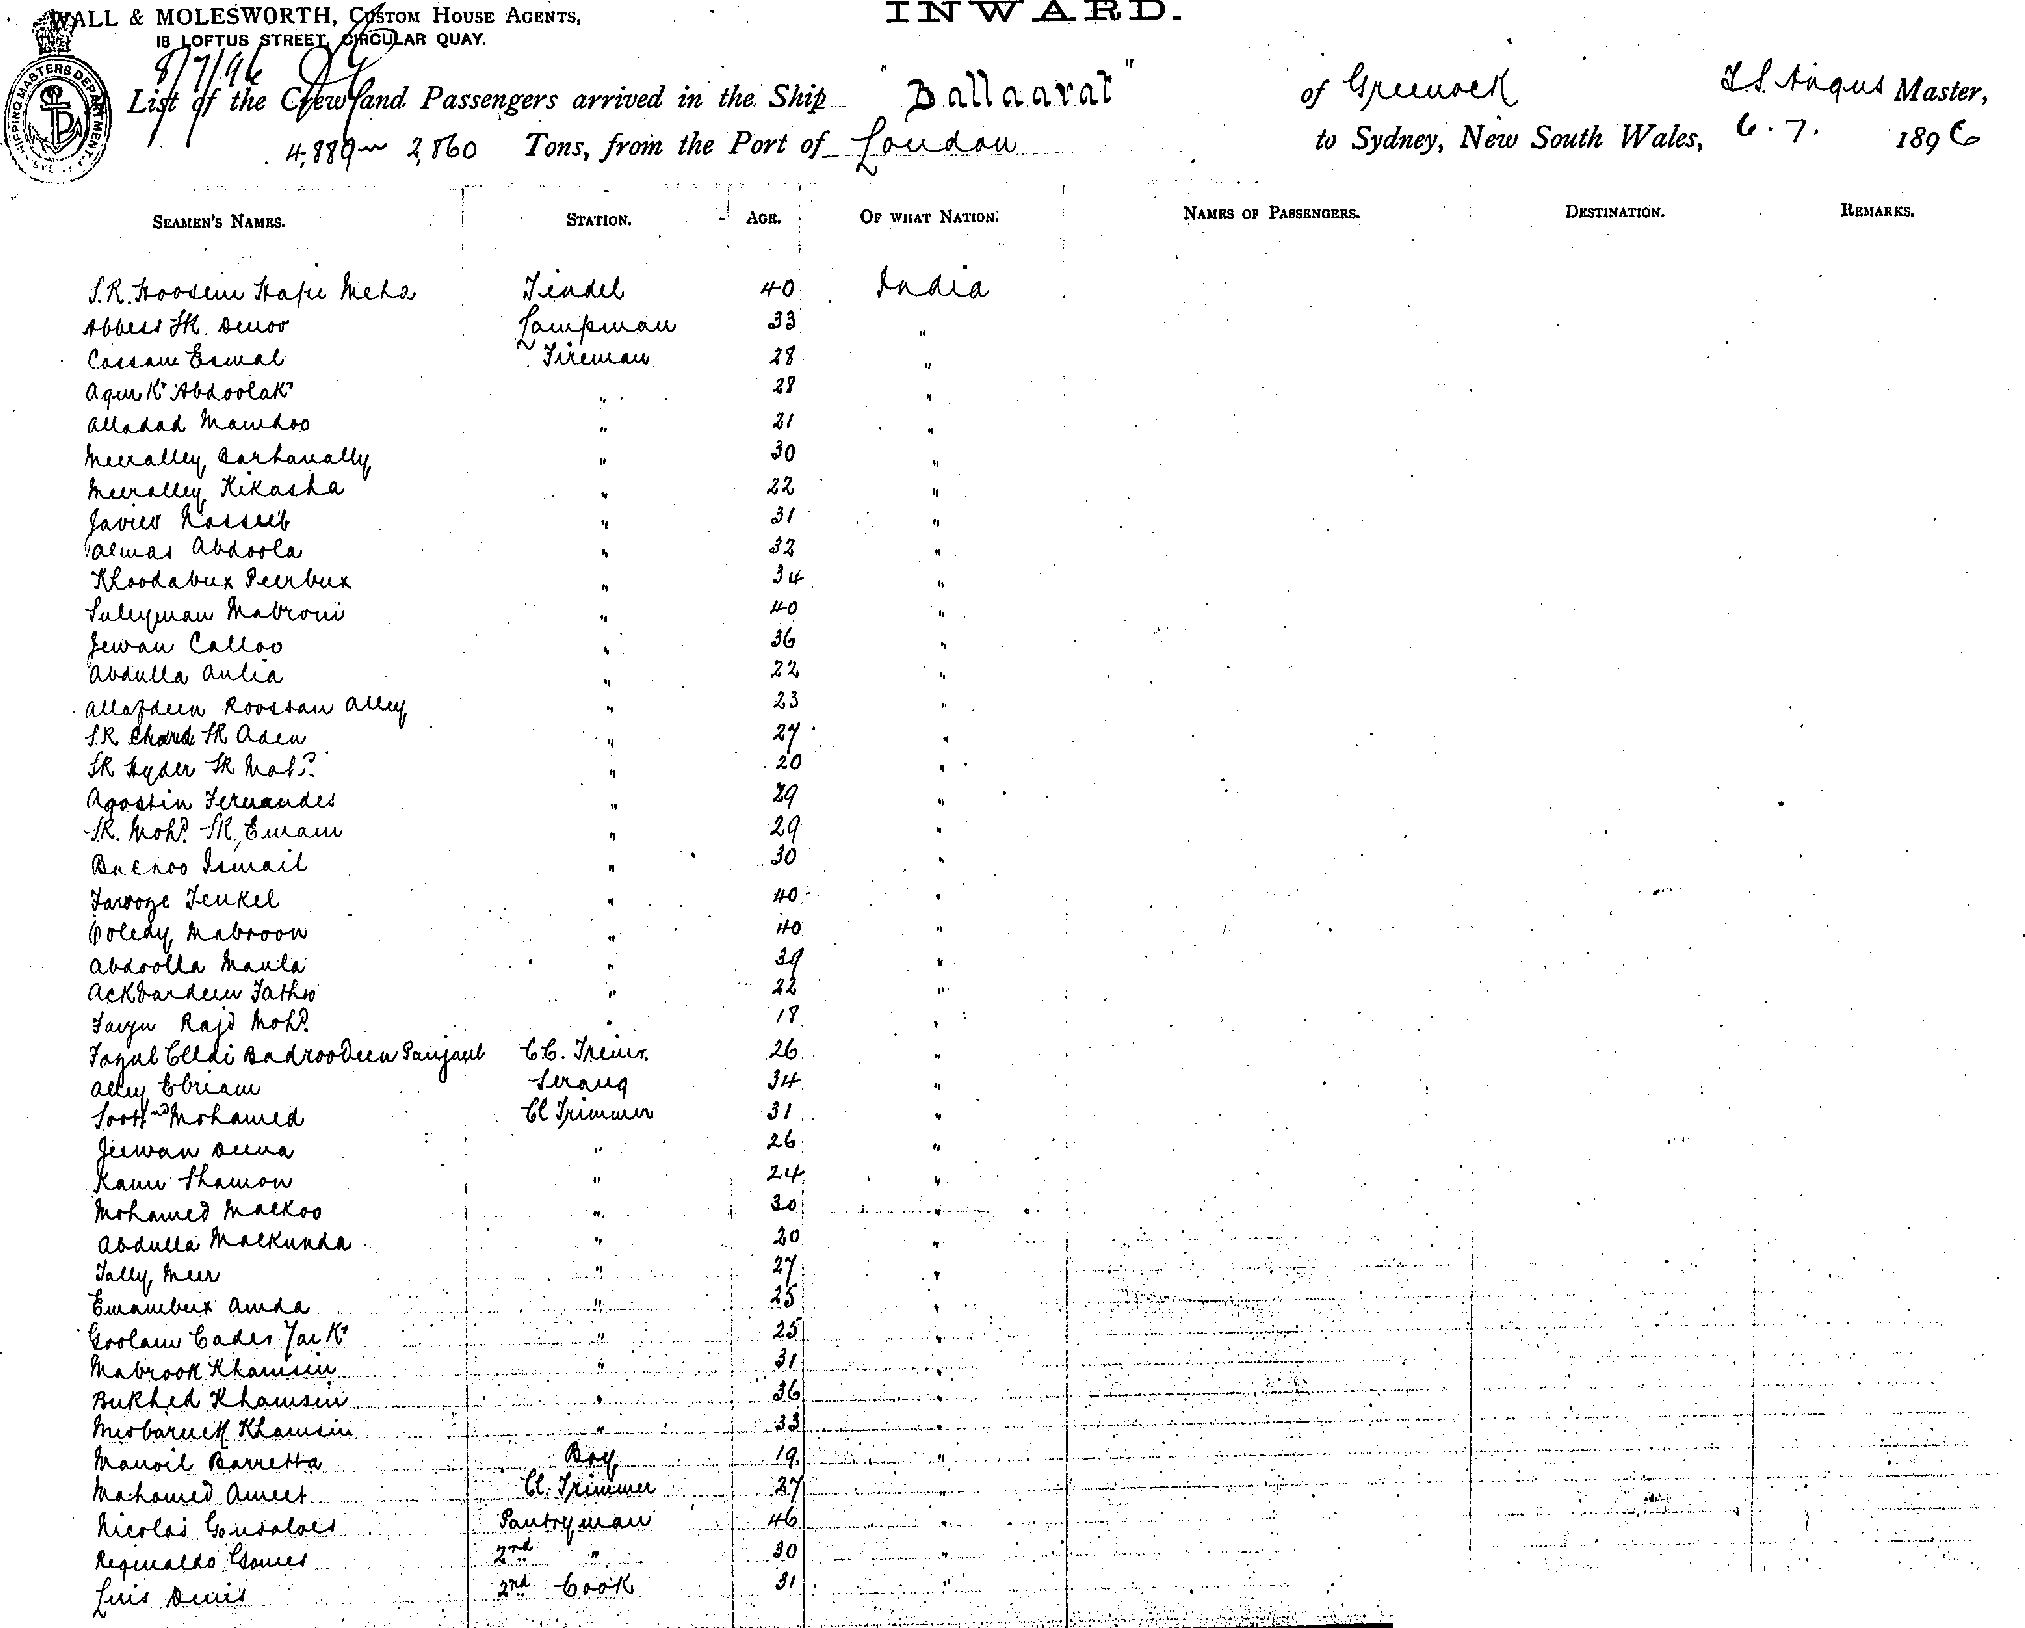 WALL & MOLESWORTH, CUSTOM HOUSE AGENTS,
18 LOFTUS STREET, CIRCULAR QUAY.
INWARD.
8/7/96
SHIPPING MASTERS DEPARTMENT
List of the Crew and Passengers arrived in the Ship "Ballaarat" of Greenock Master,
4,889 2,860 Tons, from the Port of London to Sydney, New South Wales, 6.7. 1896
SEAMEN'S NAMES. STATION. AGE. OF WHAT NATION. NAMES OF PASSENGERS. DESTINATION. REMARKS.
S.R. Hoosein Meha Tindel 40 India
Abbess SK. Denoo Lampman 33 "
Cassam Esmal Fireman 28 "
Agur K? Abdoolak? " 28 "
Alladad Mamdoo " 21 "
Meeralley " 30 "
Meeralley Kikasha " 22 "
Nasseeb " 31 "
Almas Abdoola " 32 "
Khoodabux Peerbux " 34 "
Suleyman Mabroni " 40 "
Jewan Calloo " 36 "
Abdulla Aulia " 22 "
Roostan Alley " 23 "
S.R. SR Aden " 27 "
SR Hyder SR Mohd. " 20 "
Agostin Fernandes " 29 "
SR. Mohd. SR. Emam " 29 "
Ismail " 30 "
Farooze " 40 "
Mabroon " 40 "
Abdoolla Maula " 39 "
Ackbardeen " 22 "
Mohd. " 18 "
Badroodeen 26 "
Alley Ebriam Serang 34 "
Mohamed Cl Trimmer 31 "
Jeewan Deena " 26 "
Shamon " 24 "
Mohamed Mackoo " 30 "
Abdulla Mackunda " 20 "
Meer " 27 "
Emambux Amda " 25 "
Goolam Cader " 25 "
Mabrook Khamsin " 31 "
Bukhed Khamsin " 36 "
Khamsin " 33 "
Manoil Barretta Boy 19 "
Mahomed Ameet Cl. Trimmer 27 "
Nicolas Gonsalves Pantryman 46 "
Reginaldo Gomes 2nd " 30 "
Luis Denis 2nd Cook 31 "